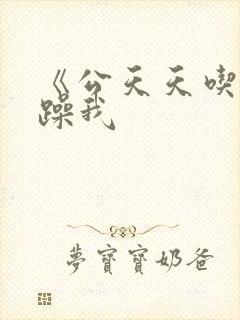 《公天天喫
躁我
夢寶寶奶爸